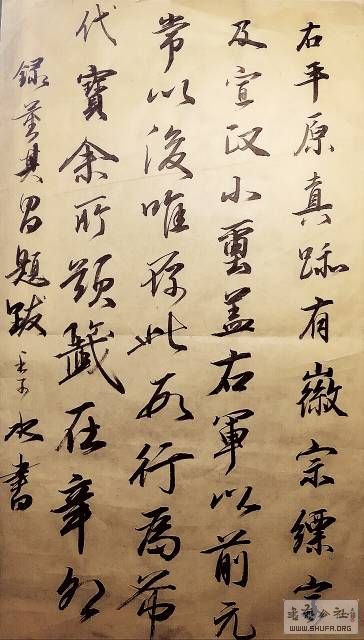 右平原真跡有徽宗縹字
及宣政小璽蓋右軍以前元
常以後唯存此數行為希
代寶余所題籤在辛卯
錄董其昌題跋水書
WWW.SHUFA.ORG